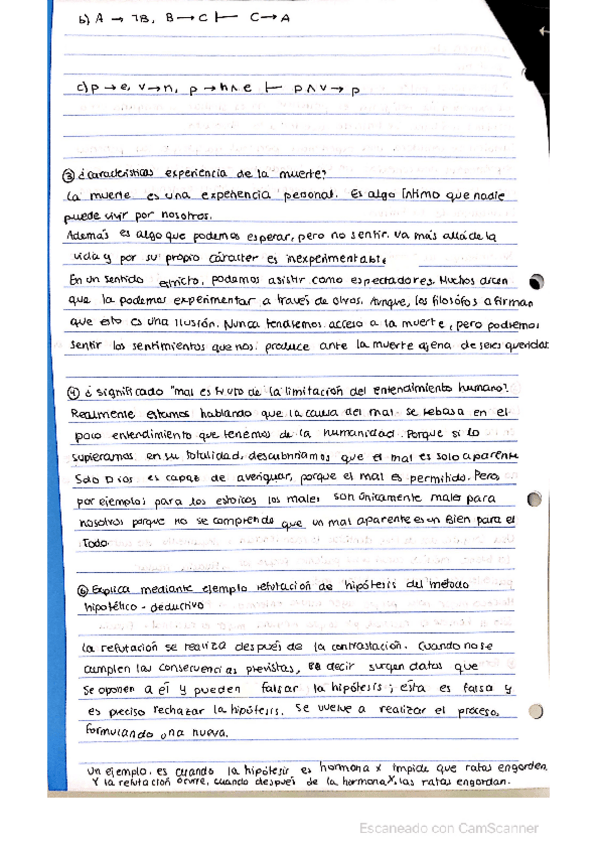 b) A → ¬B, B → C ⊢ C → A
c) p → e, v → n, p → h ∧ e ⊢ p ∧ v → p
③ ¿características experiencia de la muerte?
La muerte es una experiencia personal. Es algo íntimo que nadie
puede vivir por nosotros.
Además es algo que podemos esperar, pero no sentir. Va más allá de la
vida y por su propio carácter es inexperimentable
En un sentido estricto, podemos asistir como espectadores. Muchos dicen
que la podemos experimentar a través de otros. Aunque, los filósofos afirman
que esto es una ilusión. Nunca tendremos acceso a la muerte, pero podremos
sentir los sentimientos que nos produce ante la muerte ajena de seres queridos.
④ ¿significado "mal es fruto de la limitación del entendimiento humano?
Realmente estamos hablando que la causa del mal se rebasa en el
poco entendimiento que tenemos de la humanidad. Porque si lo
supieramos en su totalidad, descubriríamos que el mal es solo aparente
Solo Dios es capaz de averiguar, porque el mal es permitido. Pero,
por ejemplo; para los estoicos los males son únicamente males para
nosotros porque no se comprende que un mal aparente es un Bien para el
Todo.
⑥ Explica mediante ejemplo refutación de hipótesis del método
hipotético - deductivo
La refutación se realiza después de la contrastación. Cuando no se
cumplen las consecuencias previstas, es decir surgen datos que
se oponen a él y pueden falsar la hipótesis; ésta es falsa y
es preciso rechazar la hipótesis. Se vuelve a realizar el proceso,
formulando una nueva.
Un ejemplo, es cuando la hipótesis es hormona x impide que ratas engorden.
Y la refutación ocurre, cuando después de la hormona x, las ratas engordan.
Escaneado con CamScanner